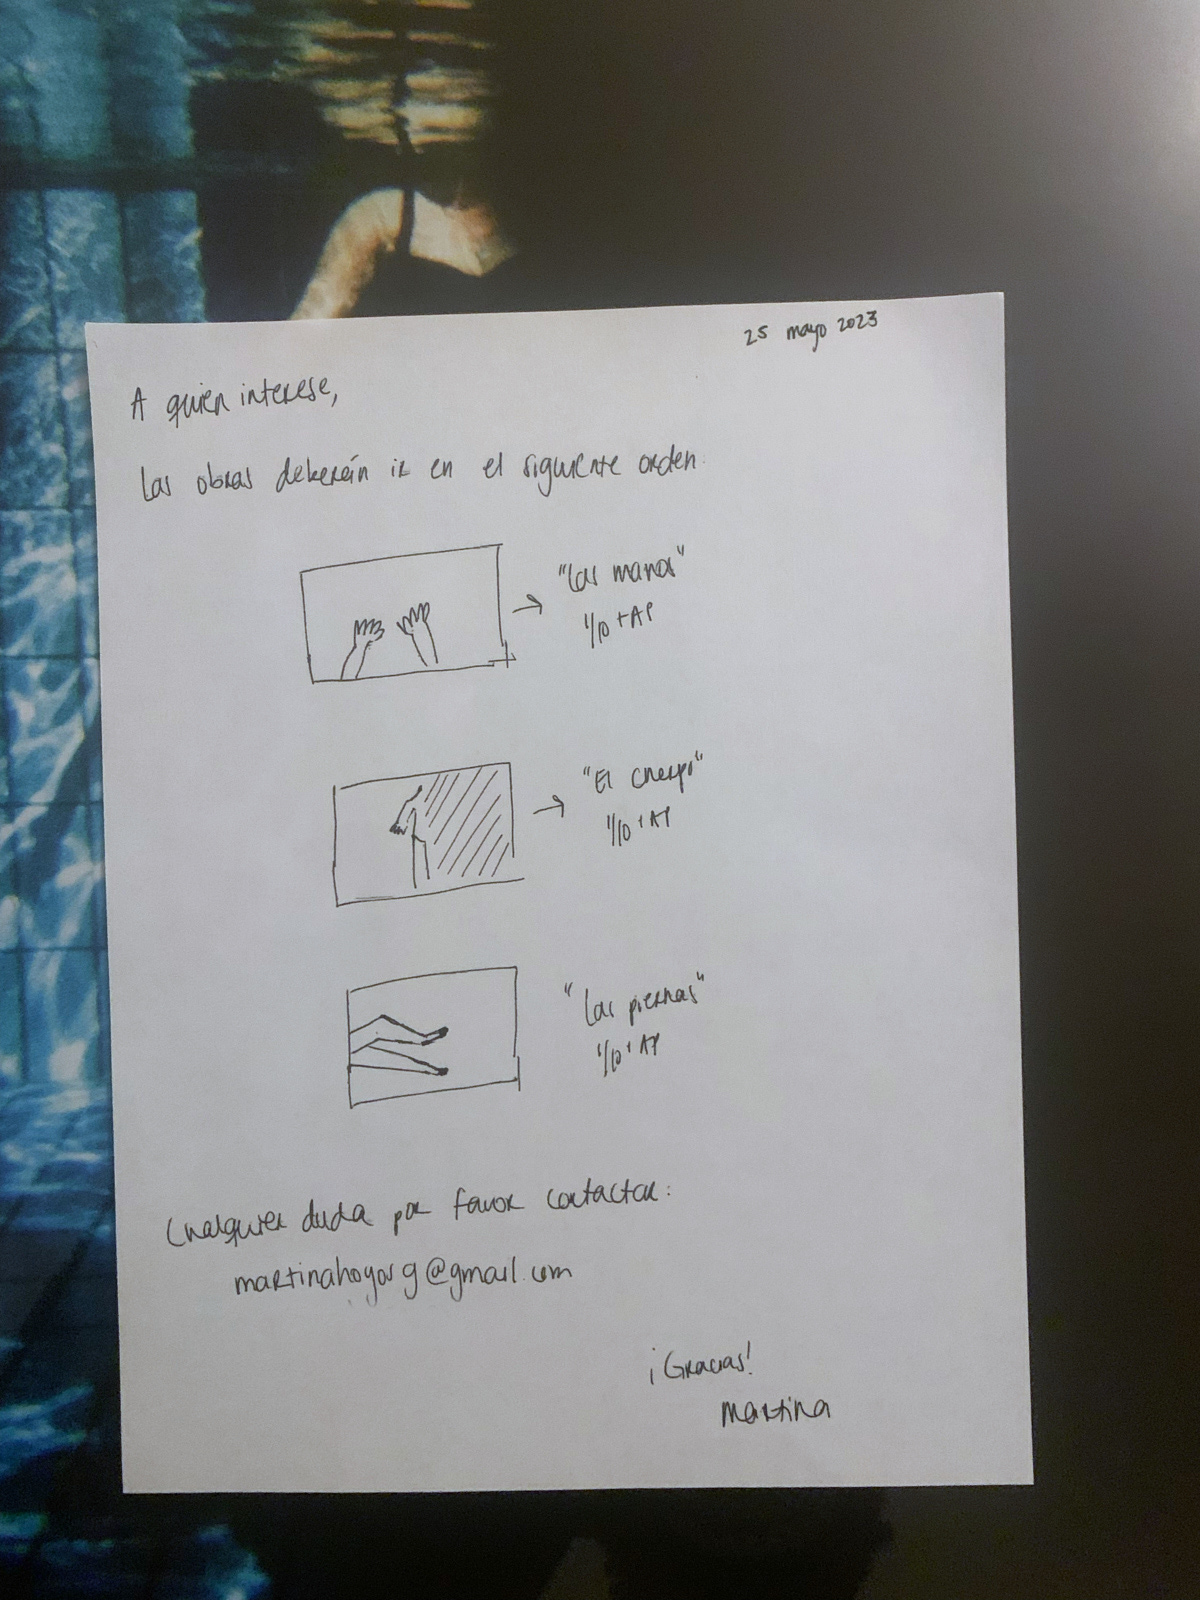 25 mayo 2023
A quien interese,
Las obras deberán ir en el siguiente orden.
"Las manos"
1/10 + AP
"El cuerpo"
1/10 + AP
"Las piernas"
1/10 + AP
Cualquier duda por favor contactar:
martinahoyosg@gmail.com
¡Gracias!
Martina